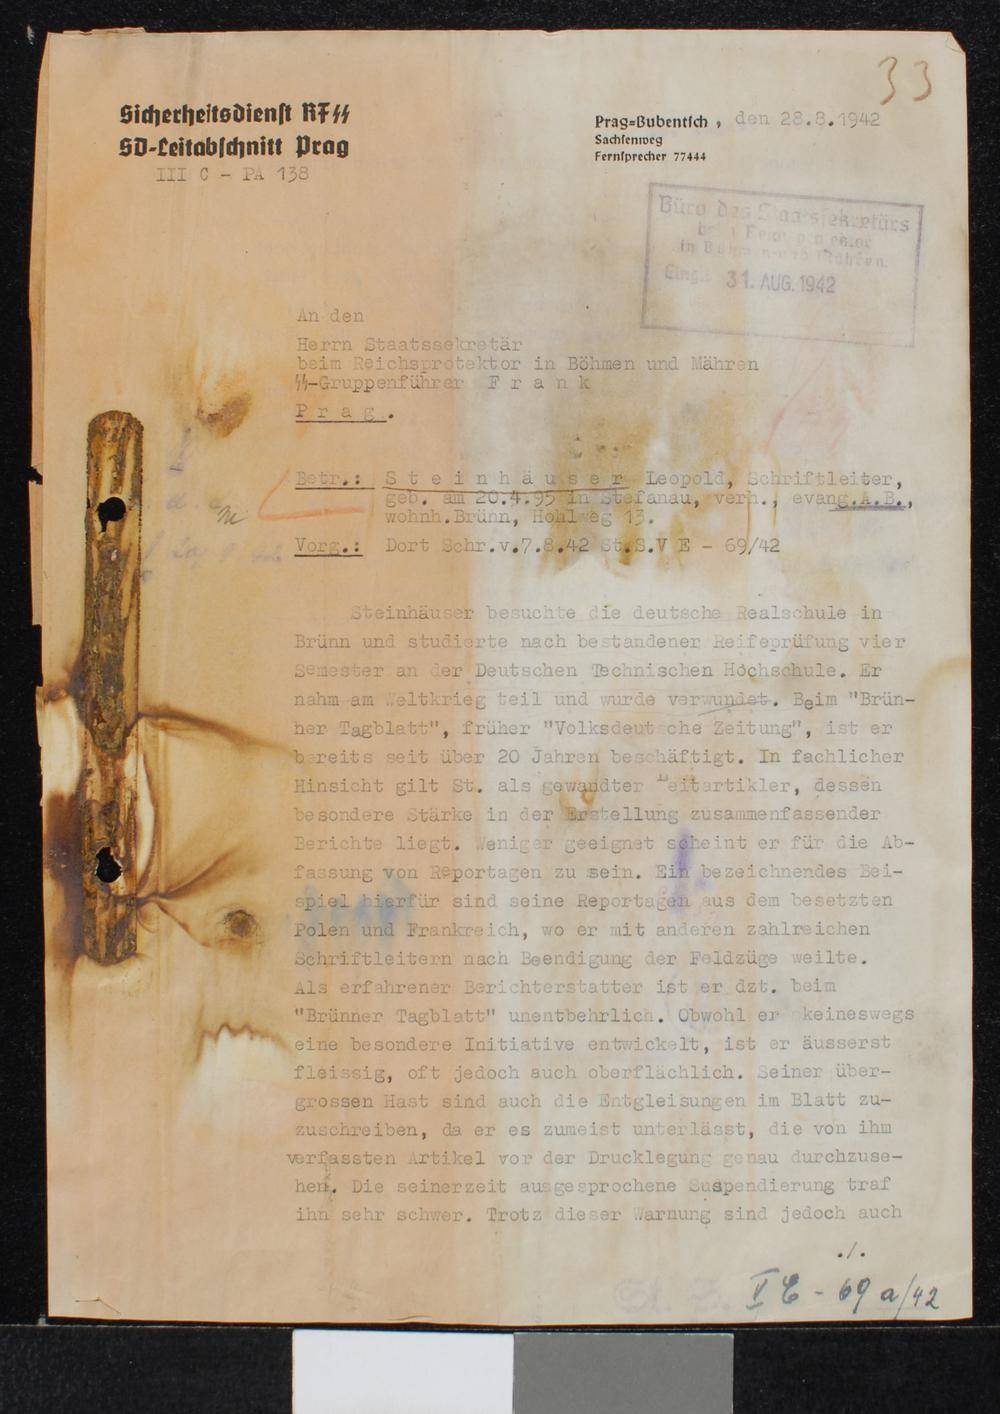 33
Sicherheitsdienst RFSS
SD-Leitabschnitt Prag
III C - PA 138
Prag-Bubentsch, den 28.8.1942
Sachsenweg
Fernsprecher 77444
Büro des Staatssekretärs
in Böhmen und Mähren.
Eing. 31. AUG. 1942
An den
Herrn Staatssekretär
beim Reichsprotektor in Böhmen und Mähren
SS-Gruppenführer F r a n k
P r a g .
Betr.: S t e i n h ä u s e r Leopold, Schriftleiter,
geb. am 20.4.95 in Stefanau, verh., evang.A.B.,
wohnh.Brünn, Hohlweg 13.
Vorg.: Dort Schr.v.7.8.42 St.S.V E - 69/42
Steinhäuser besuchte die deutsche Realschule in
Brünn und studierte nach bestandener Reifeprüfung vier
Semester an der Deutschen Technischen Hochschule. Er
nahm am Weltkrieg teil und wurde verwundet. Beim "Brün-
ner Tagblatt", früher "Volksdeutsche Zeitung", ist er
bereits seit über 20 Jahren beschäftigt. In fachlicher
Hinsicht gilt St. als gewandter Leitartikler, dessen
besondere Stärke in der Erstellung zusammenfassender
Berichte liegt. Weniger geeignet scheint er für die Ab-
fassung von Reportagen zu sein. Ein bezeichnendes Bei-
spiel hierfür sind seine Reportagen aus dem besetzten
Polen und Frankreich, wo er mit anderen zahlreichen
Schriftleitern nach Beendigung der Feldzüge weilte.
Als erfahrener Berichterstatter ist er dzt. beim
"Brünner Tagblatt" unentbehrlich. Obwohl er keineswegs
eine besondere Initiative entwickelt, ist er äusserst
fleissig, oft jedoch auch oberflächlich. Seiner über-
grossen Hast sind auch die Entgleisungen im Blatt zu-
zuschreiben, da er es zumeist unterlässt, die von ihm
verfassten Artikel vor der Drucklegung genau durchzuse-
hen. Die seinerzeit ausgesprochene Suspendierung traf
ihn sehr schwer. Trotz dieser Warnung sind jedoch auch
./.
V E - 69 a/42